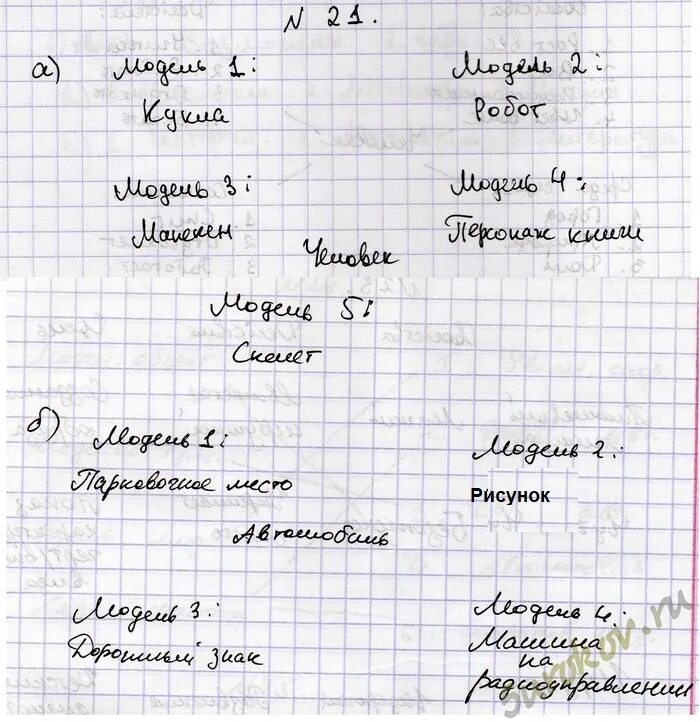 N 21.
а) Модель 1: Модель 2:
Кукла Робот
Модель 3: Модель 4:
Манекен Персонаж книги
Человек
Модель 5:
Скелет
б) Модель 1: Модель 2:
Парковочное место Рисунок
Автомобиль
Модель 3: Модель 4:
Дорожный знак Машина
на
радиоуправлении